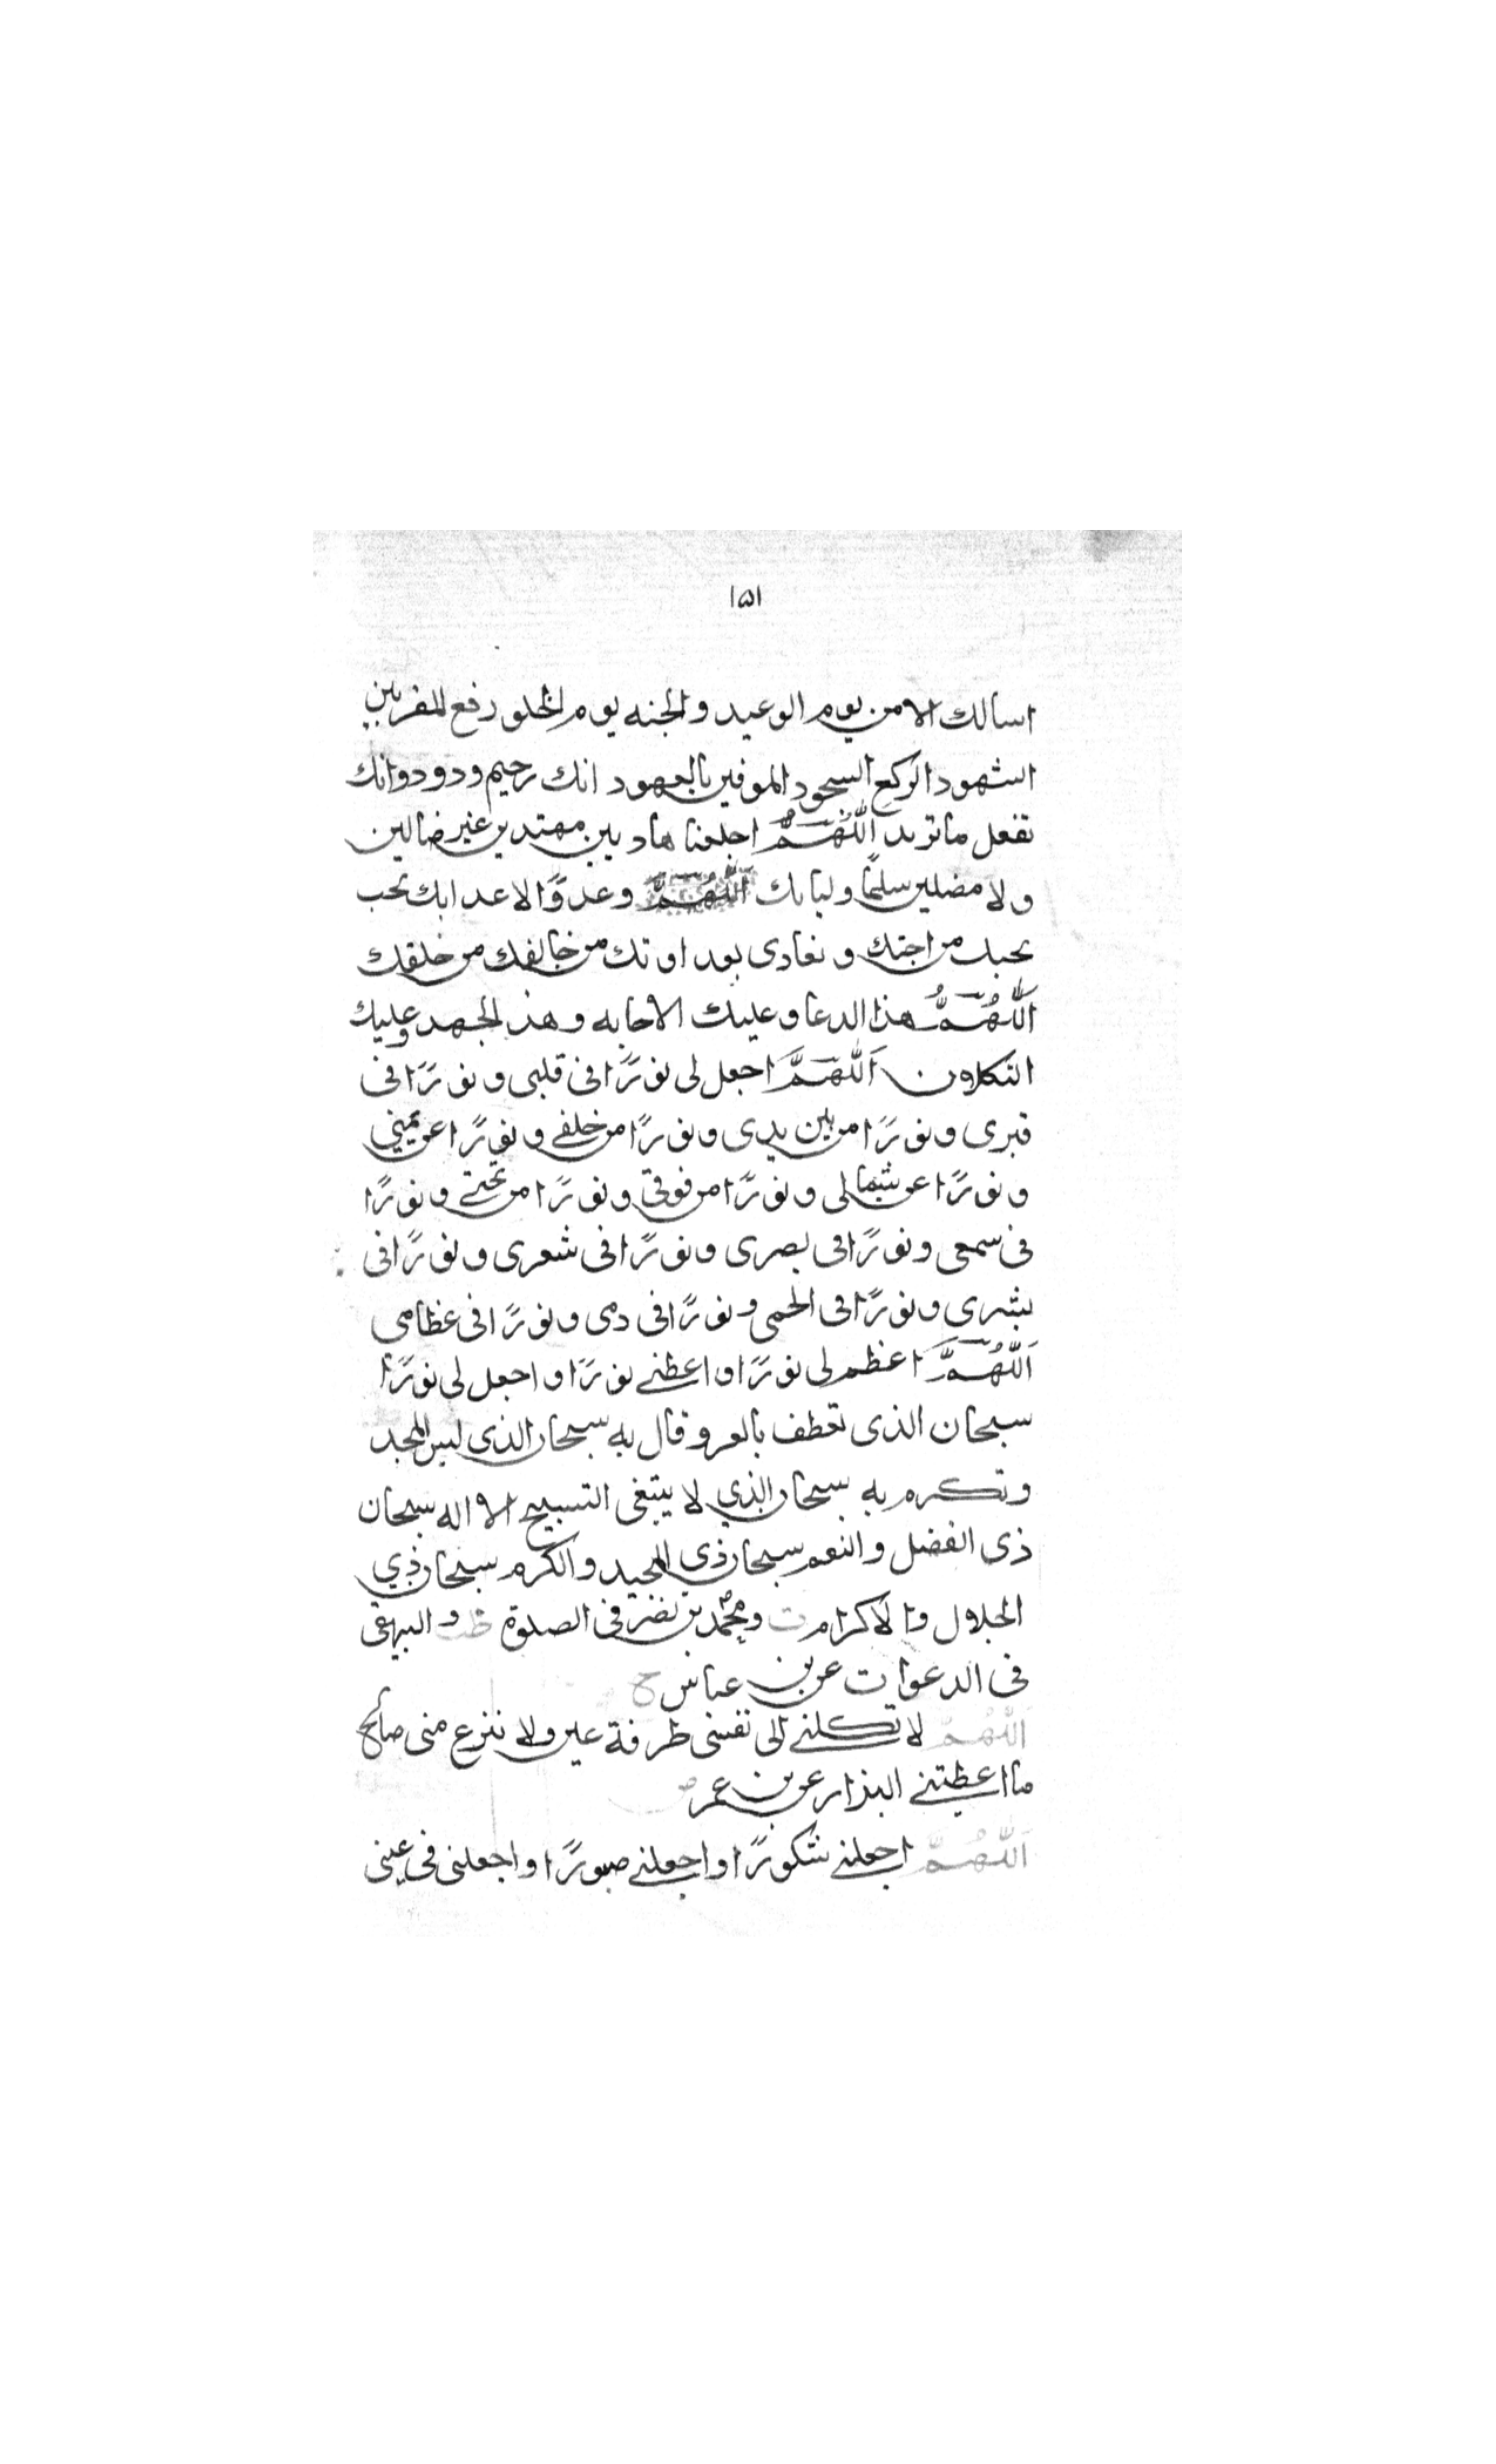 ١٥١
اسالك الامن يوم الوعيد والجنه يوم الخلو رفع المقربين
الشهود الركع السجود الموفين بالعهود انك رحيم ودود وانك
تفعل ما تريد اللَّهُمَّ اجلعنا هادين مهتدين غير ضالين
ولا مضلين سلمًا وليابك اللَّهُمَّ وعدوًّا لاعدابك نحب
بحبك من احبك ونعادى بعداوتك من خالفك من خلقك
اللَّهُمَّ هذا الدعا وعليك الاحابه وهذ الجهد وعليك
التكلاون اللَّهُمَّ اجعل لى نورًا فى قلبى ونورًا فى
قبرى ونورًا من بين يدى ونورًا من خلفى ونورًا عن يمينى
ونورًا عن شمالى ونورًا من فوقى ونورًا من تحتى ونورًا
فى سمعى ونورًا فى بصرى ونورًا فى شعرى ونورًا فى
بشرى ونورًا فى الحمى ونورًا فى دمى ونورًا فى عظامى
اللَّهُمَّ اعظم لى نورًا واعطنى نورًا واجعل لى نورًا
سبحان الذى تعطف بالعز وقال به سبحان الذى لبس المجد
وتكرم به سبحان الذي لا يبتغى التسبيح الا اله سبحان
ذى الفضل والنعم سبحان ذي المجيد والكرم سبحان ذي
الجلال والاكرام ت ومحمد بن نضر فى الصلوة طب والبيهقى
فى الدعوات عن بن عباس ح
اللَّهُمَّ لا تكلنى الى نفسى طرفة عين ولا تنزع منى صالح
ما اعطيتنى البذار عن بن عمر ض
اللَّهُمَّ اجعلنى شكورًا واجعلنى صبورًا واجعلنى فى عينى